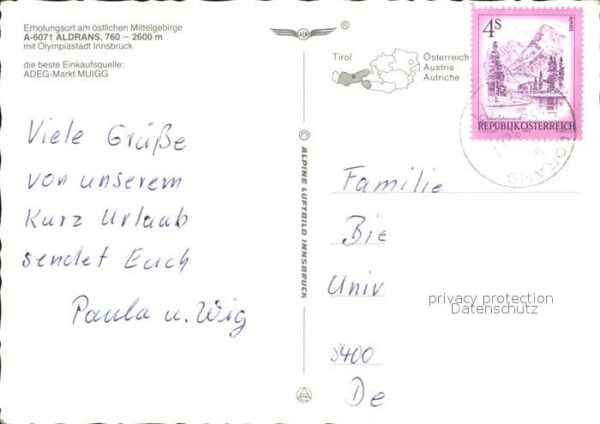 Erholungsort am östlichen Mittelgebirge
A-6071 ALDRANS, 760 – 2600 m
mit Olympiastadt Innsbruck
die beste Einkaufsquelle:
ADEG-Markt MUIGG
Viele Grüße
von unserem
Kurz Urlaub
sendet Euch
Paula u. Wig
© ALPINE LUFTBILD INNSBRUCK
®
Tirol
Österreich
Austria
Autriche
4S
REPUBLIK ÖSTERREICH
ALDRANS
Familie
Bie
Univ
5400
De
privacy protection
Datenschutz